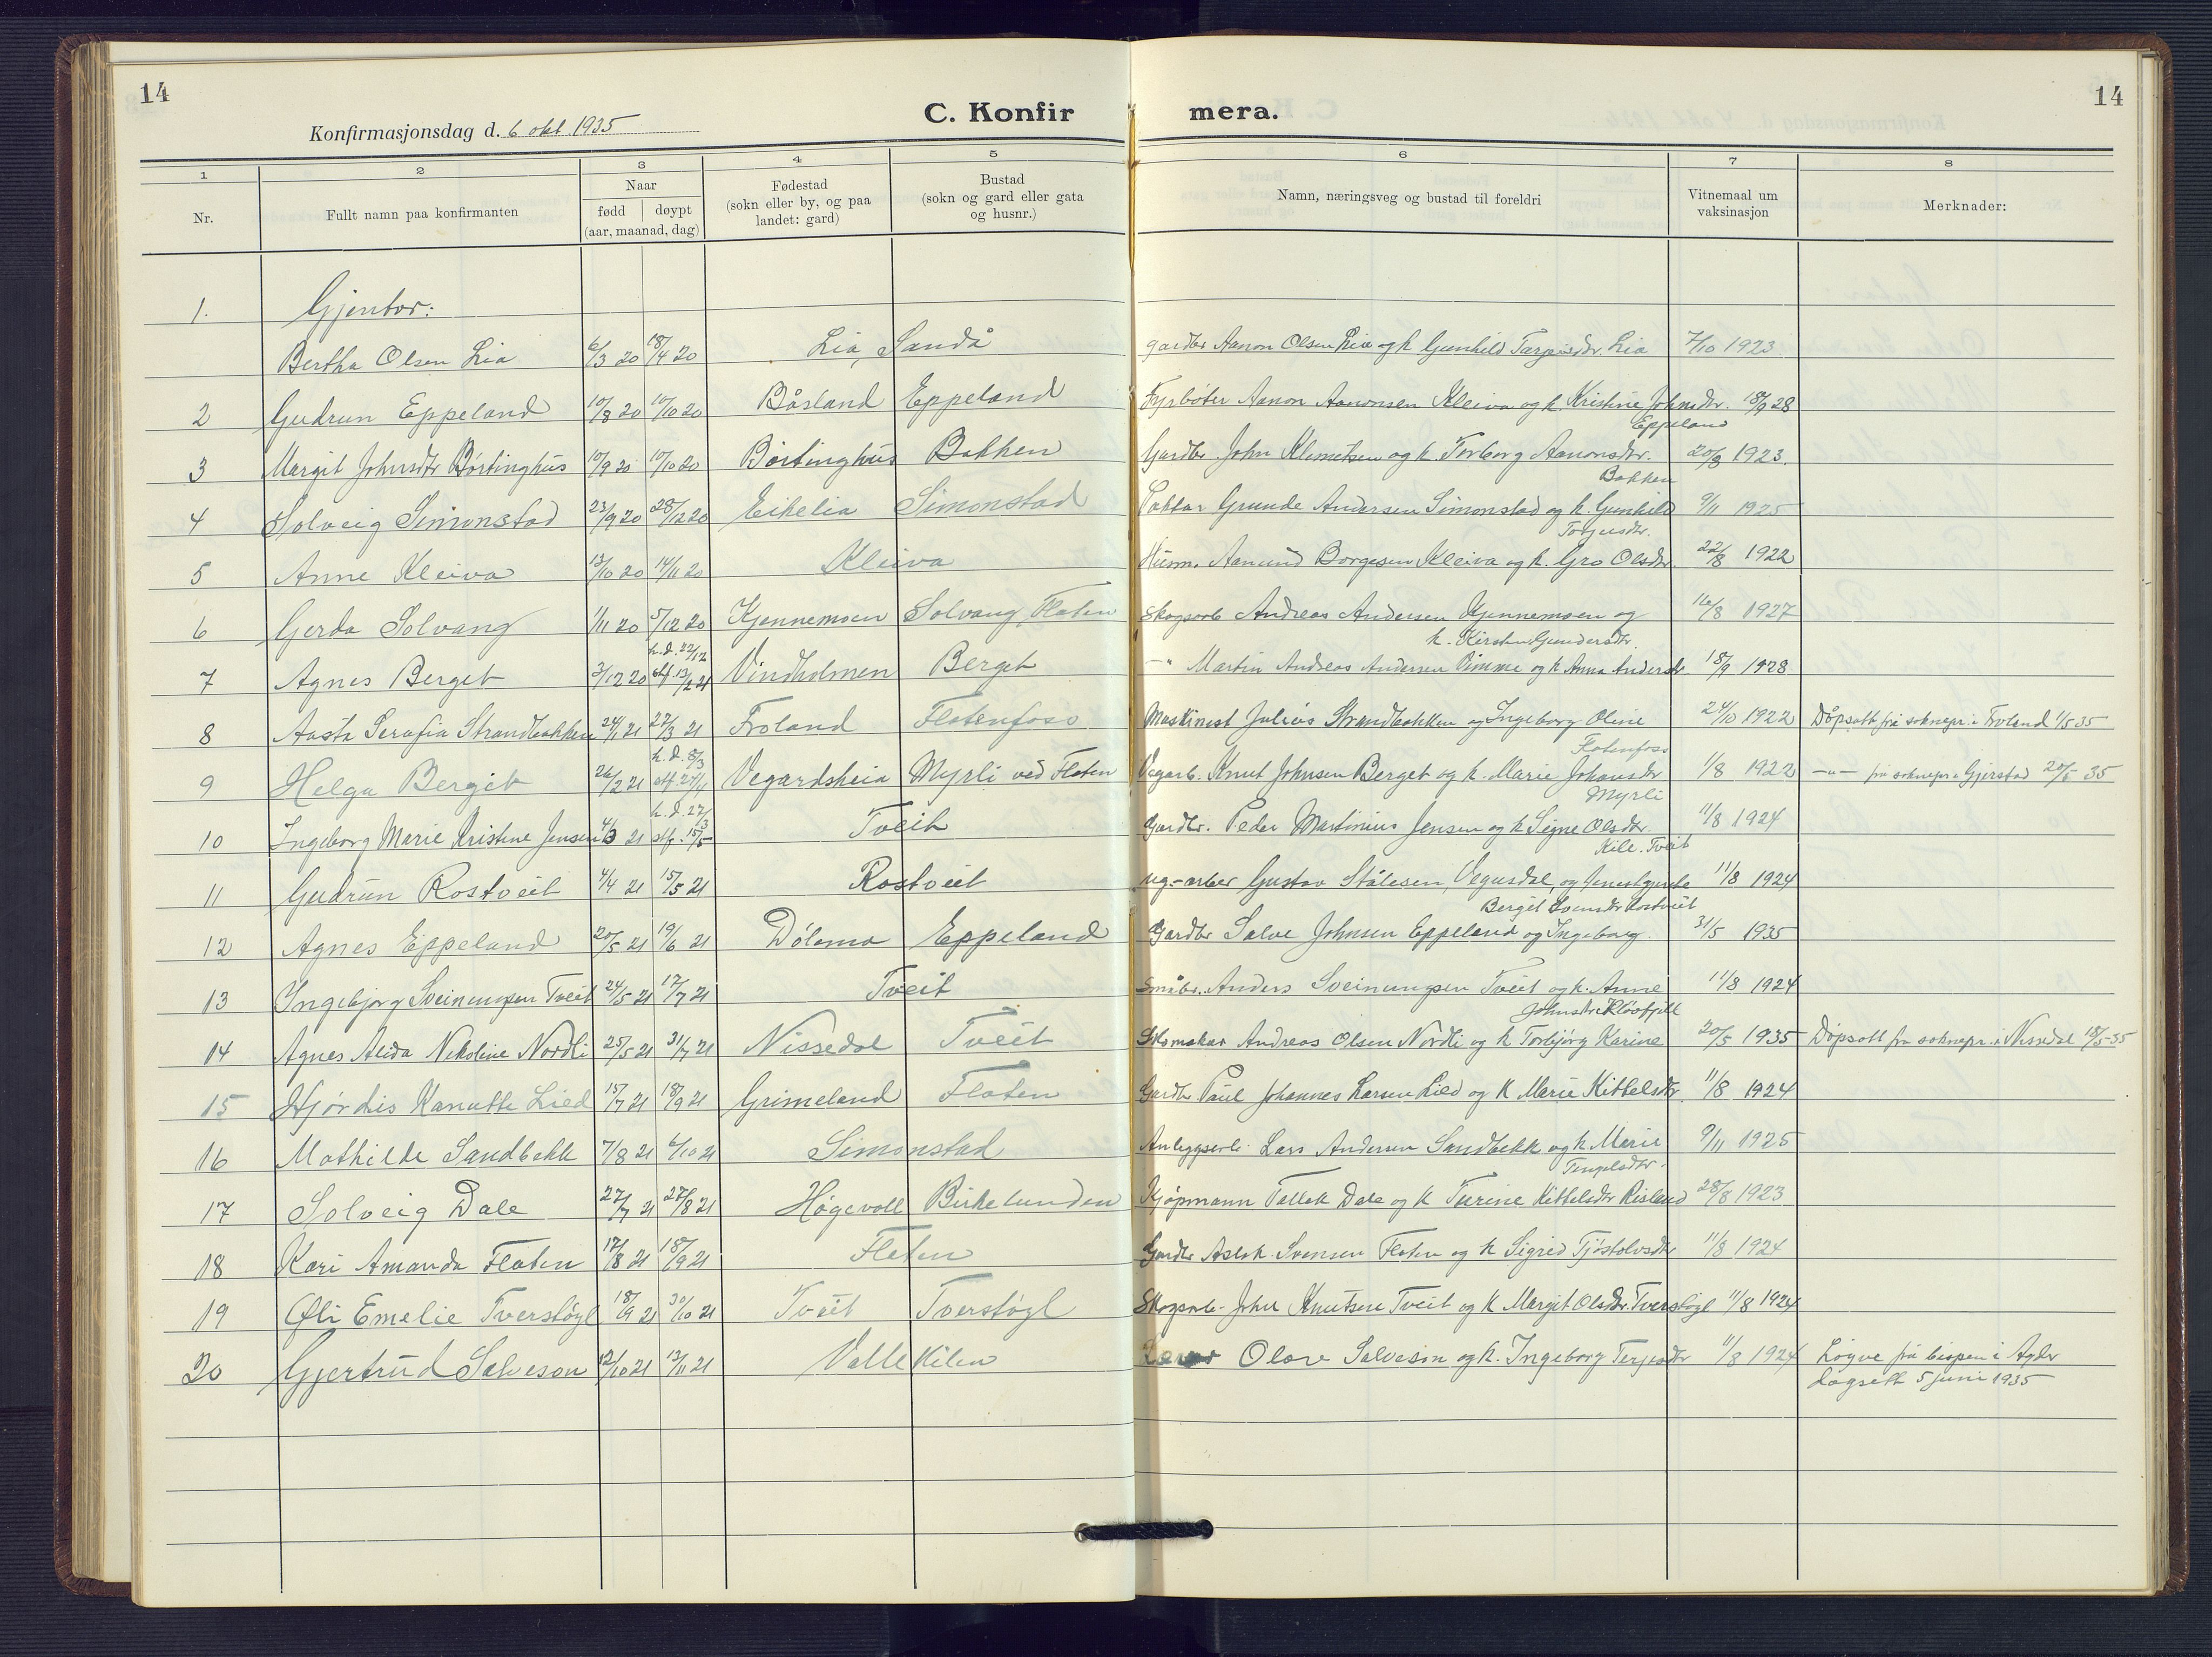 14
C. Konfirmera.
14
Konfirmasjonsdag d. 6 okt. 1935
1 2 3 4 5 6 7 8
Nr. Fullt namn paa konfirmanten Naar fødd døypt (aar, maanad, dag) Fødestad (sokn eller by, og paa landet: gard) Bustad (sokn og gard eller gata og husnr.) Namn, næringsveg og bustad til foreldri Vitnemaal um vaksinasjon Merknader:
1. Gjentor:
Bertha Olsen Lia 6/3 20 18/4 20 Lia, Sandå gardbr Aanon Olsen Lia og k Gunhild Lia 7/10 1923
2 Gudrun Eppeland 10/8 20 10/10 20 Båsland Eppeland Fyrbøter Aanon Aanonsen Kleiva og k. Kristine Johnsdtr. 18/9 28
Eppeland
3 Margit Johnsdtr Børtinghus 10/9 20 10/10 20 Børtinghus Bakken Gardbr. John Klemetsen og k. Torborg Aanonsdtr. 20/8 1923.
Bakken
4 Solveig Simonstad 23/9 20 28/12 20 Eikelia Simonstad Grunde Andersen Simonstad og k. Gunhild 9/11 1925
Torjusdtr.
5 Anne Kleiva 13/10 20 14/11 20 Kleiva Husm. Aanund Borgesen Kleiva og k. Gro Olsdtr. 22/8 1922
6 Gerda Solvang 1/11 20 5/12 20 Kjennemoen Solvang Flaten Skogsarb Andreas Andersen Kjennemoen og 16/8 1927
k. Kirsten Gundersdtr.
7 Agnes Berget 3/12 20 h.d. 22/12 stf. 13/2 21 Vindholmen Berget –"– Martin Andreas Andersen Rimme og k Anna Andersdtr 18/9 1928
8 Aasta Serafia Strandbakken 24/1 21 27/3 21 Froland Flatenfoss Maskinist Julius Strandbakken og Ingeborg Oline 24/10 1922 Dåpsatt. frå soknepr. i Froland 1/5 35
Flatenfoss
9 Helga Berget 26/2 21 h.d. 8/3 stf. 27/4 Vegardsheia Myrli ved Flaten Vegarb. Knut Johnsen Berget og k. Marie Johansdtr 1/8 1922 –"– frå soknepr. i Gjerstad 20/5 35
Myrli
10 Ingeborg Marie Kristine Jensen 4/3 21 h.d. 27/3 stf. 15/5 Tveit Gardbr. Peder Martinius Jensen og k Signe Olsdtr. 11/8 1924
Kile. Tveit
11 Gudrun Rostveit 4/4 21 15/5 21 Rostveit Gustav Stålesen, Vegusdal, og 11/8 1924
Berget Svensdtr Rostveit
12 Agnes Eppeland 20/5 21 19/6 21 Dølemo Eppeland Gardbr Salve Johnsen Eppeland og Ingeborg. 31/5 1935
13 Ingebjørg Sveinungsen Tveit 24/5 21 17/7 21 Tveit Småbr. Anders Sveinungsen Tveit og k. Anne 11/8 1924
Johnsdtr Kløvfjell
14 Agnes Alida Nikoline Nordli 25/5 21 31/7 21 Nissedal Tveit Skomakar Andreas Olsen Nordli og k Torbjørg Karine 20/5 1935 Dåpsatt fra soknepr. i Nissedal 18/5-35
15 Hjørdis Kanutte Lied 15/7 21 18/9 21 Grimeland Flaten Gardbr Paul Johannes Larsen Lied og k Marie Kittelsdtr. 11/8 1924
16 Mathilde Sandbekk 7/8 21 6/10 21 Simonstad Anleggsarb. Lars Andersen Sandbekk og k Marie 9/11 1925
Tengelsdtr.
17 Solveig Dale 27/7 21 27/8 21 Høgevoll Birkelunden Kjøpmann Tallak Dale og k Turine Kittelsdtr Risland 28/8 1923
18 Kari Amanda Flaten 17/8 21 18/9 21 Flaten Gardbr Aslak Svensen Flaten og k Sigrid Tjøstolvsdtr 11/8 1924
19 Oli Emelie Tverstøyl 18/9 21 30/10 21 Tveit Tverstøyl Skogsarb. John Knutsen Tveit og k Margit Olsdtr. Tverstøyl 11/8 1924
20 Gjertrud Salveson 12/10 21 13/11 21 Vallekilen Olav Salveson og k. Ingeborg Terjesdtr 11/8 1924 Løyve frå bispen i Agder
dagsett 5 juni 1935